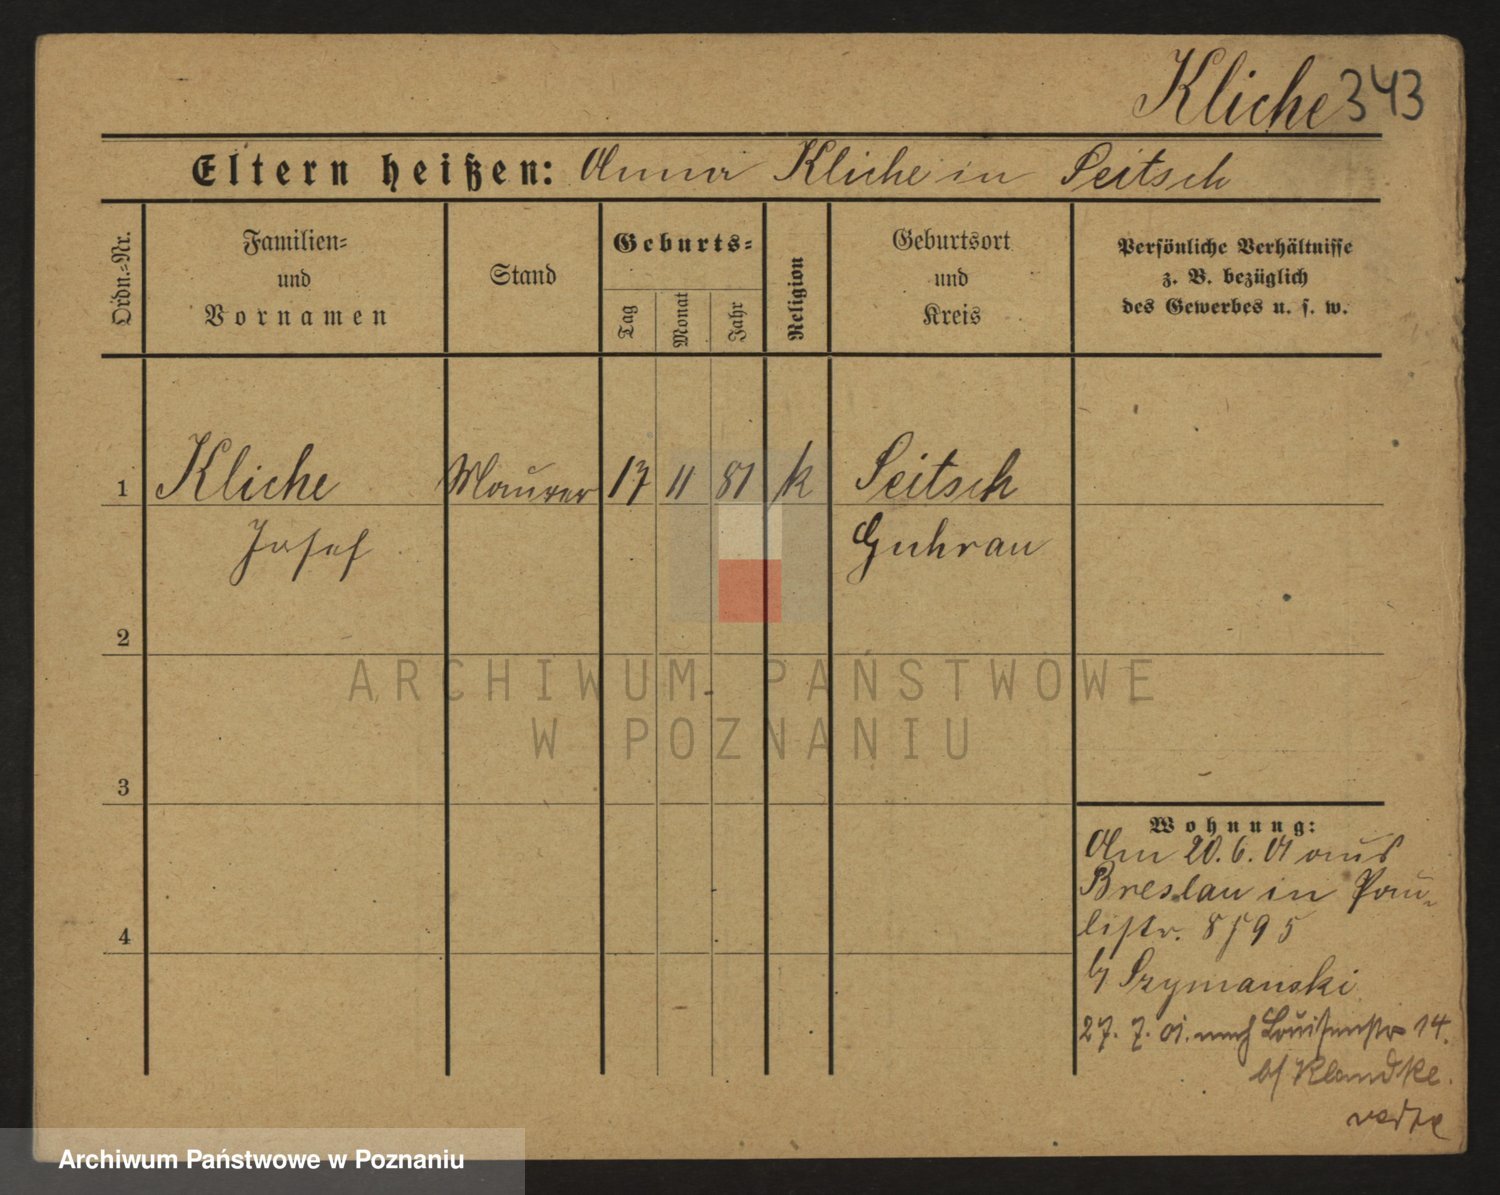 Kliche 343
Eltern heißen: Anna Kliche in Seitsch
Ordn.-Nr.
Familien-
und
Vornamen
Stand
Geburts-
Tag
Monat
Jahr
Religion
Geburtsort
und
Kreis
Persönliche Verhältnisse
z. B. bezüglich
des Gewerbes u. s. w.
1 Kliche Maurer 17 11 81 k Seitsch
Josef Guhrau
2
3
4
ARCHIWUM PAŃSTWOWE
W POZNANIU
Wohnung:
Am 20. 6. 01 aus
Breslau in Pau-
listr. 8 f 9 5
b/ Szymanski
27. 7. 01. nach Louisenstr 14.
b/ Klandke.
Archiwum Państwowe w Poznaniu